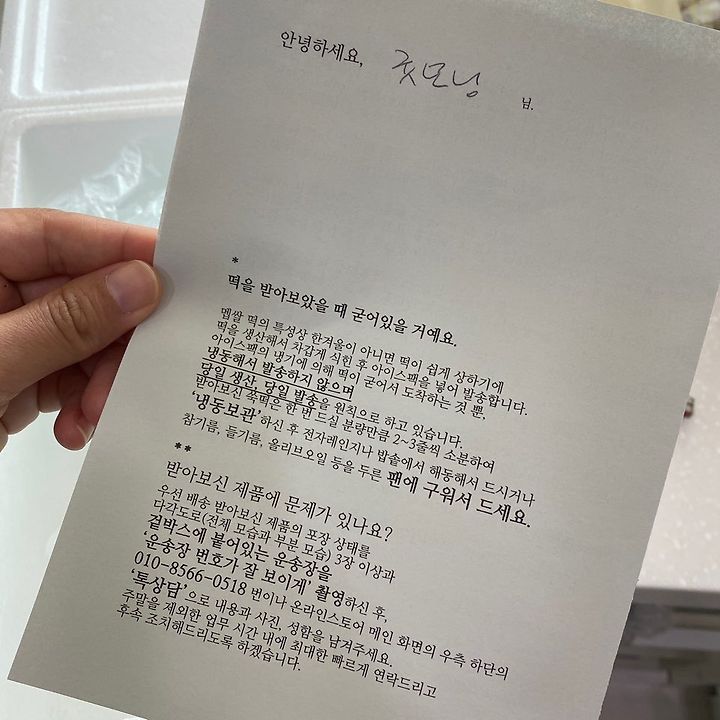 안녕하세요, 굿모닝 님.
*
떡을 받아보았을 때 굳어있을 거예요.
멥쌀 떡의 특성상 한겨울이 아니면 떡이 쉽게 상하기에
떡을 생산해서 차갑게 식힌 후 아이스팩을 넣어 발송합니다.
아이스팩의 냉기에 의해 떡이 굳어서 도착하는 것 뿐,
냉동해서 발송하지 않으며
당일 생산, 당일 발송을 원칙으로 하고 있습니다.
받아보신 쑥떡은 한 번 드실 분량만큼 2~3줄씩 소분하여
'냉동보관'하신 후 전자레인지나 밥솥에서 해동해서 드시거나
참기름, 들기름, 올리브오일 등을 두른 팬에 구워서 드세요.
**
받아보신 제품에 문제가 있나요?
우선 배송 받아보신 제품의 포장 상태를
다각도로(전체 모습과 부분 모습) 3장 이상과
겉박스에 붙어있는 운송장을
'운송장 번호가 잘 보이게' 촬영하신 후,
010-8566-0518 번이나 온라인스토어 메인 화면의 우측 하단의
'톡상담'으로 내용과 사진, 성함을 남겨주세요.
주말을 제외한 업무 시간 내에 최대한 빠르게 연락드리고
후속 조치해드리도록 하겠습니다.